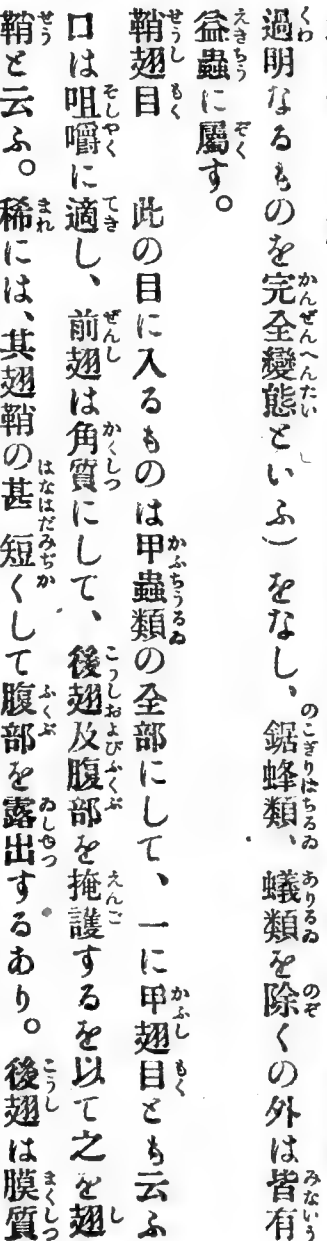 過明なるものを完全變態といふ)をなし、鋸蜂類、蟻類を除くの外は皆有
益蟲に屬す。
鞘翅目　此の目に入るものは甲蟲類の全部にして、一に甲翅目とも云ふ
口は咀嚼に適し、前翅は角質にして、後翅及腹部を掩護するを以て之を翅
鞘と云ふ。稀には、其翅鞘の甚短くして腹部を露出するあり。後翅は膜質